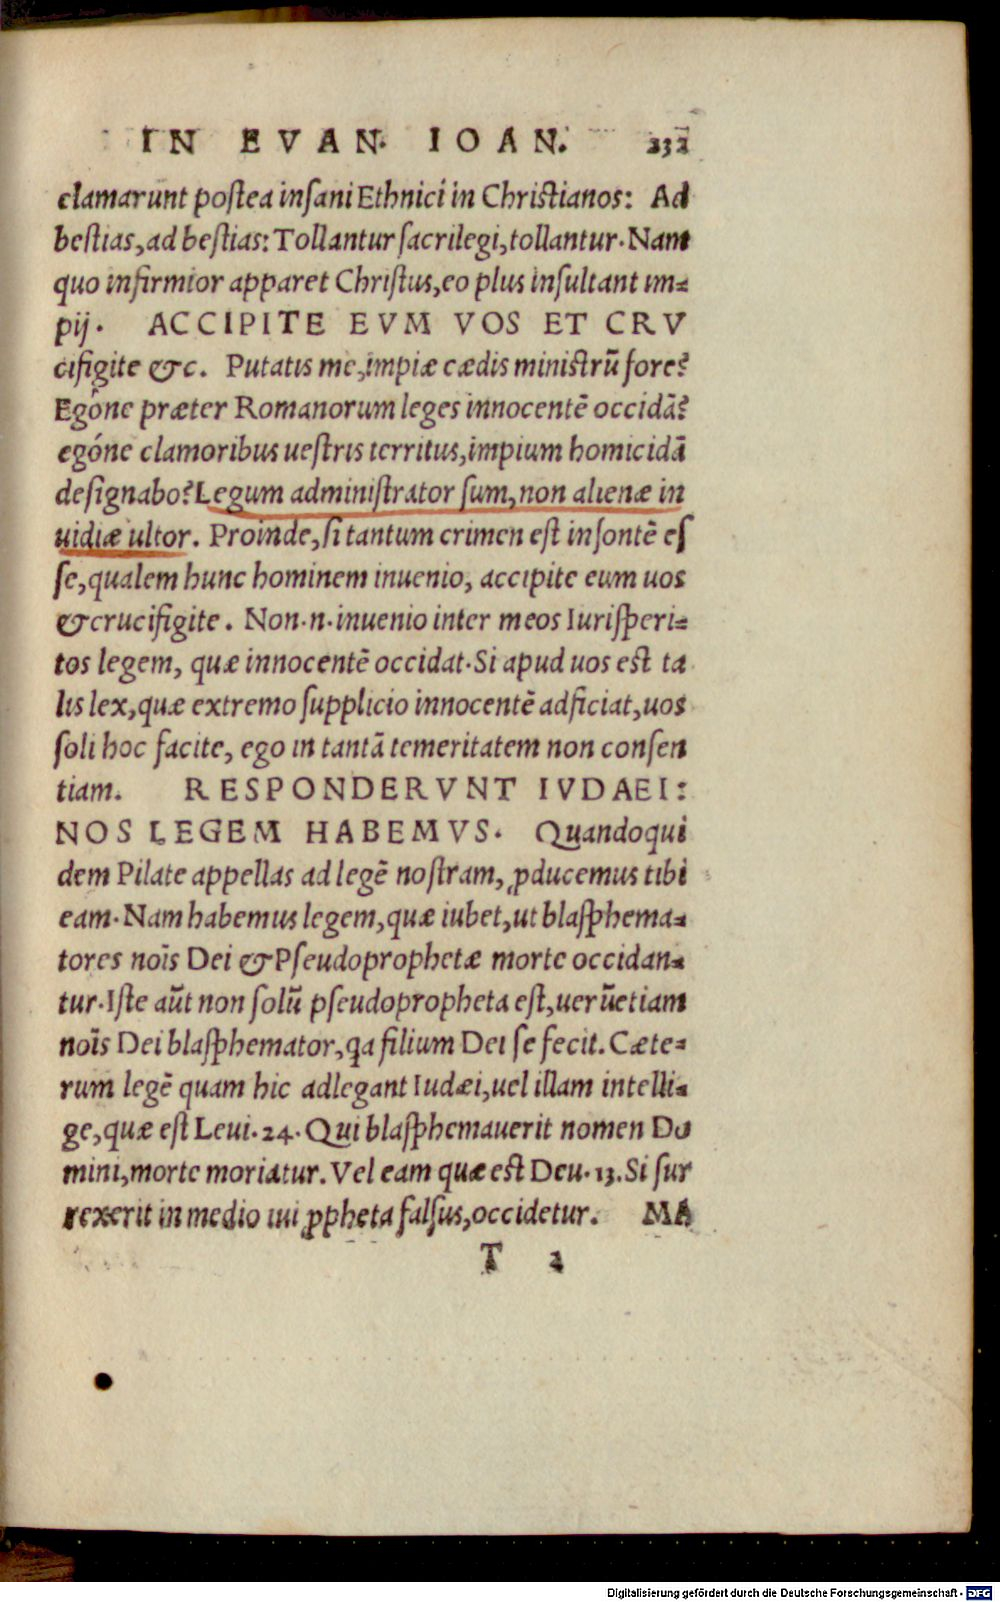 IN EVAN. IOAN. 232
clamarunt poſtea inſani Ethnici in Chriſtianos: Ad
beſtias, ad beſtias: Tollantur ſacrilegi, tollantur. Nam
quo infirmior apparet Chriſtus, eo plus inſultant im-
pij. ACCIPITE EVM VOS ET CRV
cifigite &c. Putatis me, impiæ cædis miniſtrū fore?
Egóne præter Romanorum leges innocentē occidā?
egóne clamoribus ueſtris territus, impium homicidā
deſignabo? Legum adminiſtrator ſum, non alienæ in
uidiæ ultor. Proinde, ſi tantum crimen eſt inſontē eſ
ſe, qualem hunc hominem inuenio, accipite eum uos
& crucifigite. Non.n. inuenio inter meos Iuriſperi-
tos legem, quæ innocentē occidat. Si apud uos eſt ta
lis lex, quæ extremo ſupplicio innocentē adficiat, uos
ſoli hoc facite, ego in tantā temeritatem non conſen
tiam. RESPONDERVNT IVDAEI:
NOS LEGEM HABEMVS. Quandoqui
dem Pilate appellas ad legē noſtram, ꝓducemus tibi
eam. Nam habemus legem, quæ iubet, ut blaſphema-
tores noīs Dei & Pſeudoprophetæ morte occidan-
tur. Iſte aūt non ſolū pſeudopropheta eſt, uerūetiam
noīs Dei blaſphemator, qa filium Dei ſe fecit. Cæte-
rum legē quam hic adlegant Iudæi, uel illam intelli-
ge, quæ eſt Leui. 24. Qui blaſphemauerit nomen Do
mini, morte moriatur. Vel eam quæ eſt Deu. 13. Si ſur
rexerit in medio tui ꝓpheta falſus, occidetur. MA
T 2
Digitalisierung gefördert durch die Deutsche Forschungsgemeinschaft - DFG